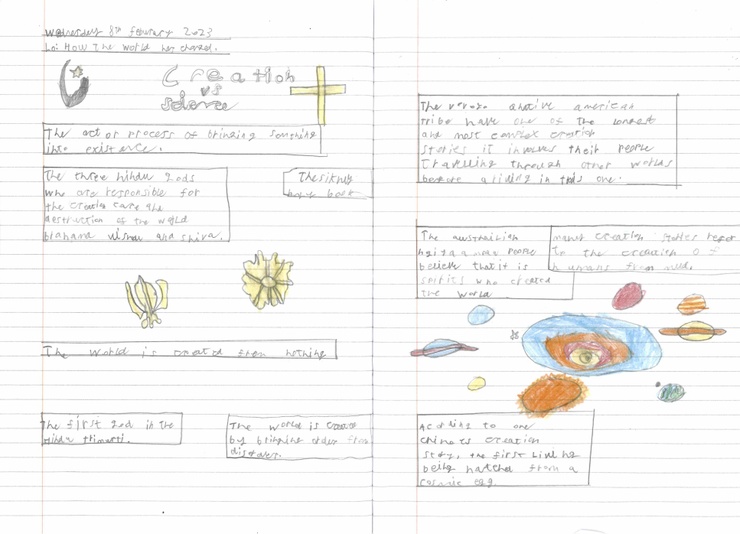 Wednesday 8th febuary 2023
Lo: How The world has changed.
Creation
vs
science
The act or process of bringing somthing
into existence.
The three hindu gods
who are responsible for
the creation care and
destruction of the world
brahama vishnu and shiva.
The sikhs
holy book
The world is created from nothing
The first god in the
Hindu trimurti.
The world is create
by bringing order from
disorder.
The native american
tribe have one of the longest
and most complex creation
stories it involves their people
travelling through other worlds
before ariding in this one.
The australian
people
believe that it is
spirits who created
the world
many creation stories refer
to the creation of
humans from mud.
According to one
creation
story, the first living
being hatched from a
cosmic egg.